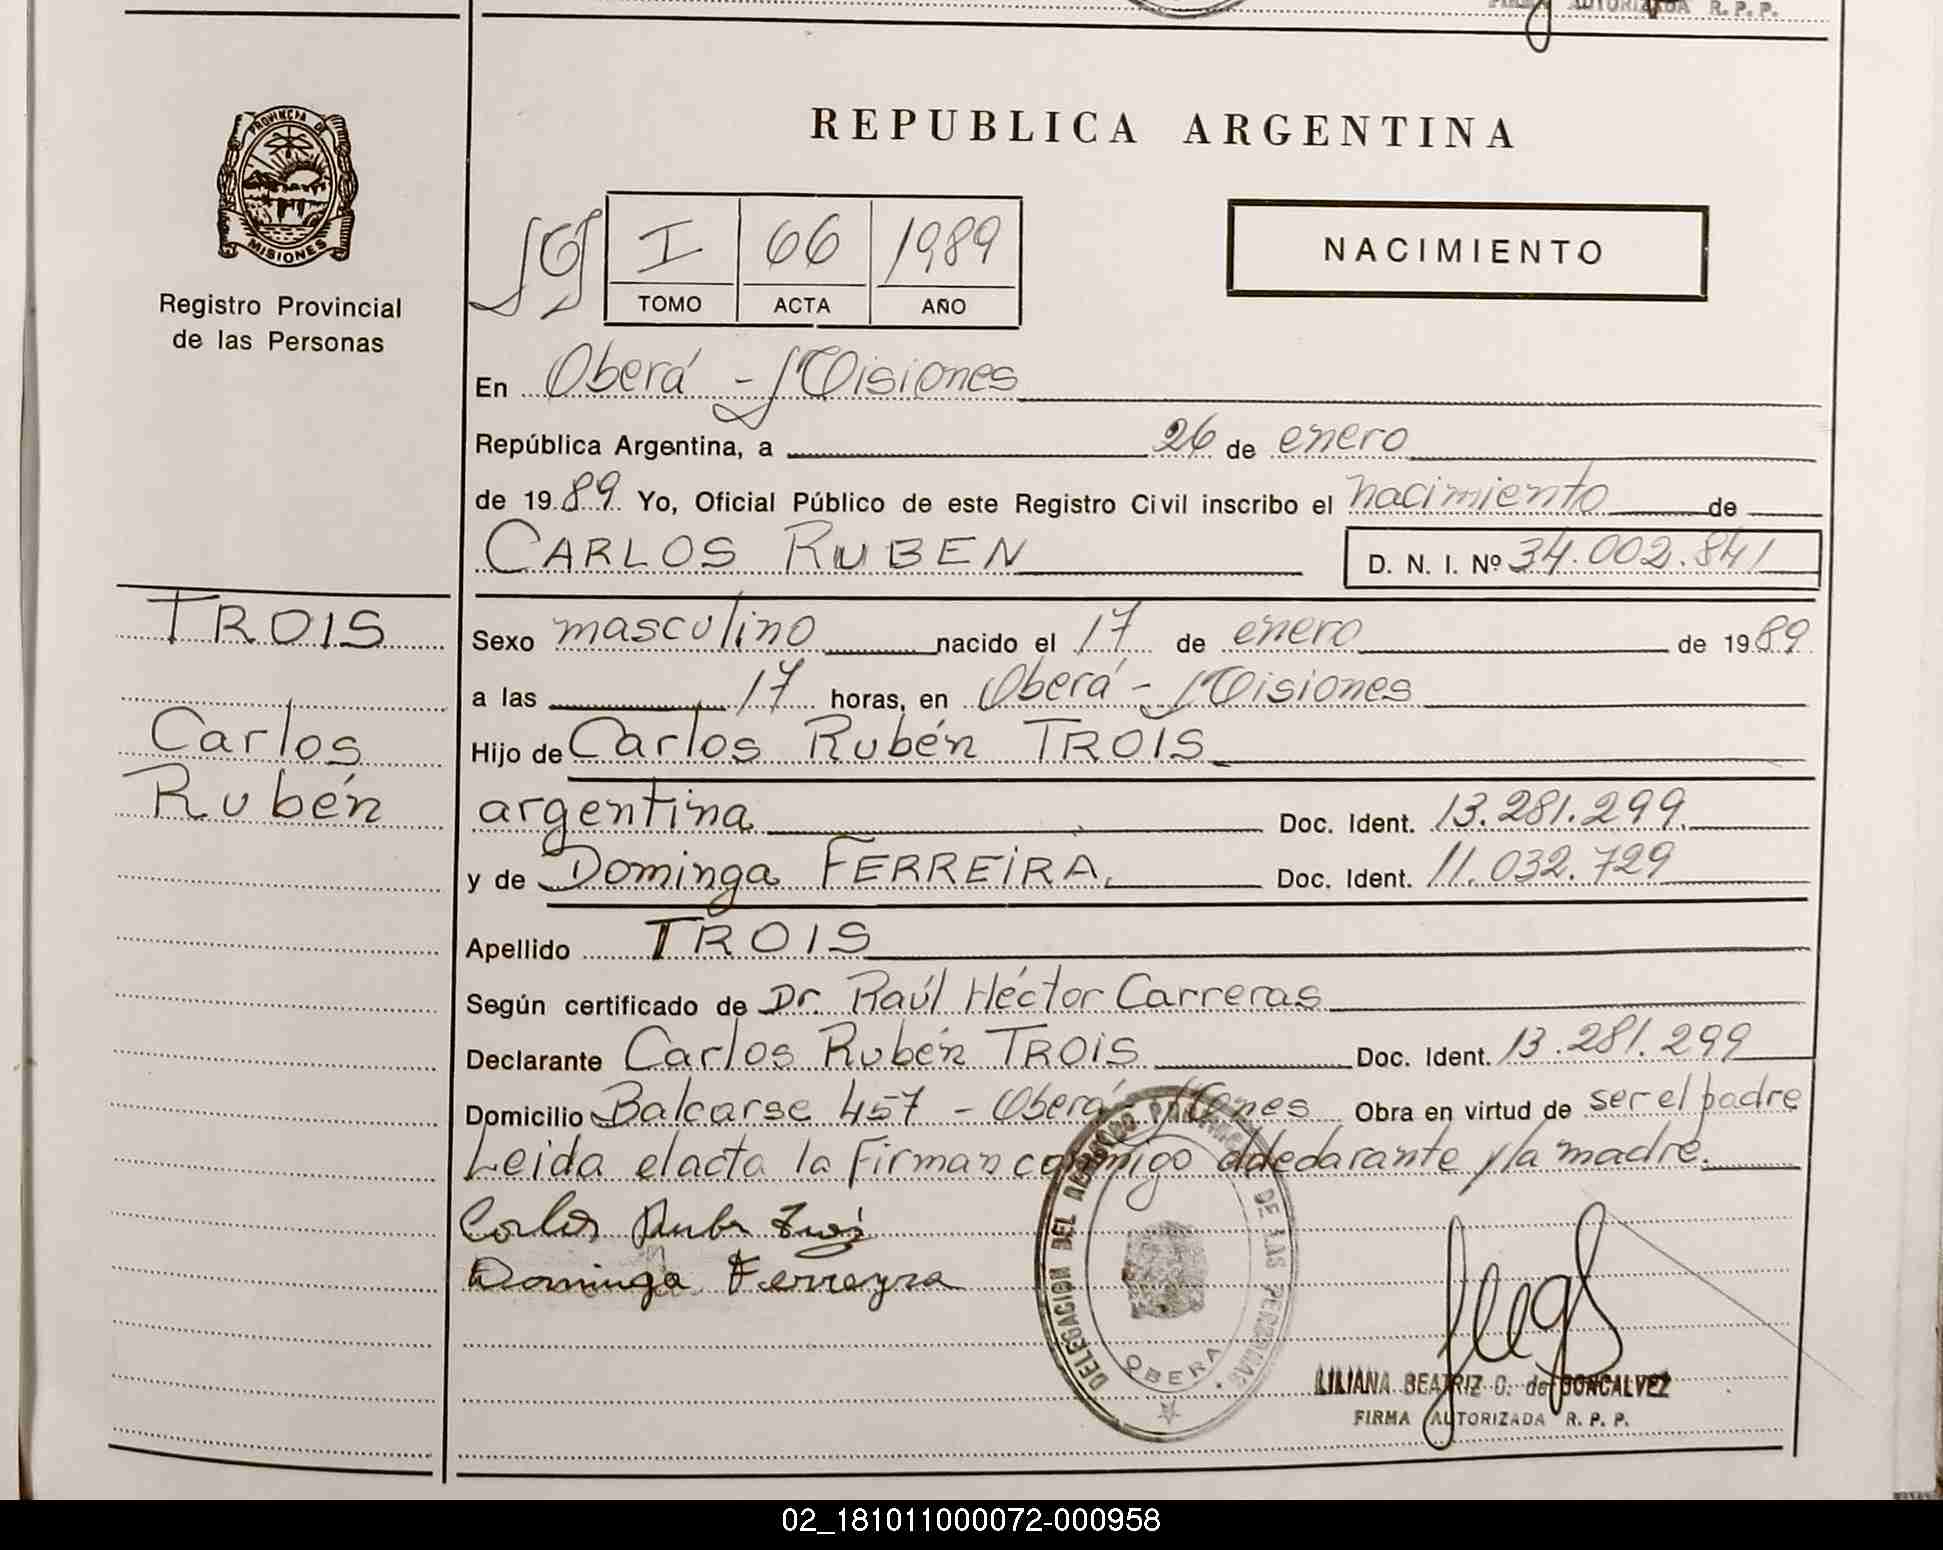 FIRMA AUTORIZADA R. P. P.
PROVINCIA DE
MISIONES
Registro Provincial
de las Personas
REPUBLICA ARGENTINA
I 66 1989
TOMO ACTA AÑO
NACIMIENTO
En Oberá - Misiones
República Argentina, a 26 de enero
de 1989 Yo, Oficial Público de este Registro Civil inscribo el nacimiento de
CARLOS RUBEN D. N. I. Nº 34.002.841
TROIS
Carlos
Rubén
Sexo masculino nacido el 17 de enero de 1989
a las 17 horas, en Oberá - Misiones
Hijo de Carlos Rubén TROIS
argentina Doc. Ident. 13.281.299
y de Dominga FERREIRA, Doc. Ident. 11.032.729
Apellido TROIS
Según certificado de Dr. Raúl Héctor Carreras
Declarante Carlos Rubén TROIS Doc. Ident. 13.281.299
Domicilio Balcarse 457 - Oberá - Mones Obra en virtud de ser el padre
Leida el acta la firman conmigo el dedarante y la madre.
Carlos Dominga Ferreyra
DELEGACION DEL REGISTRO DE LAS PERSONAS
OBERA
LILIANA BEATRIZ O. de GONCALVEZ
FIRMA AUTORIZADA R. P. P.
02_181011000072-000958